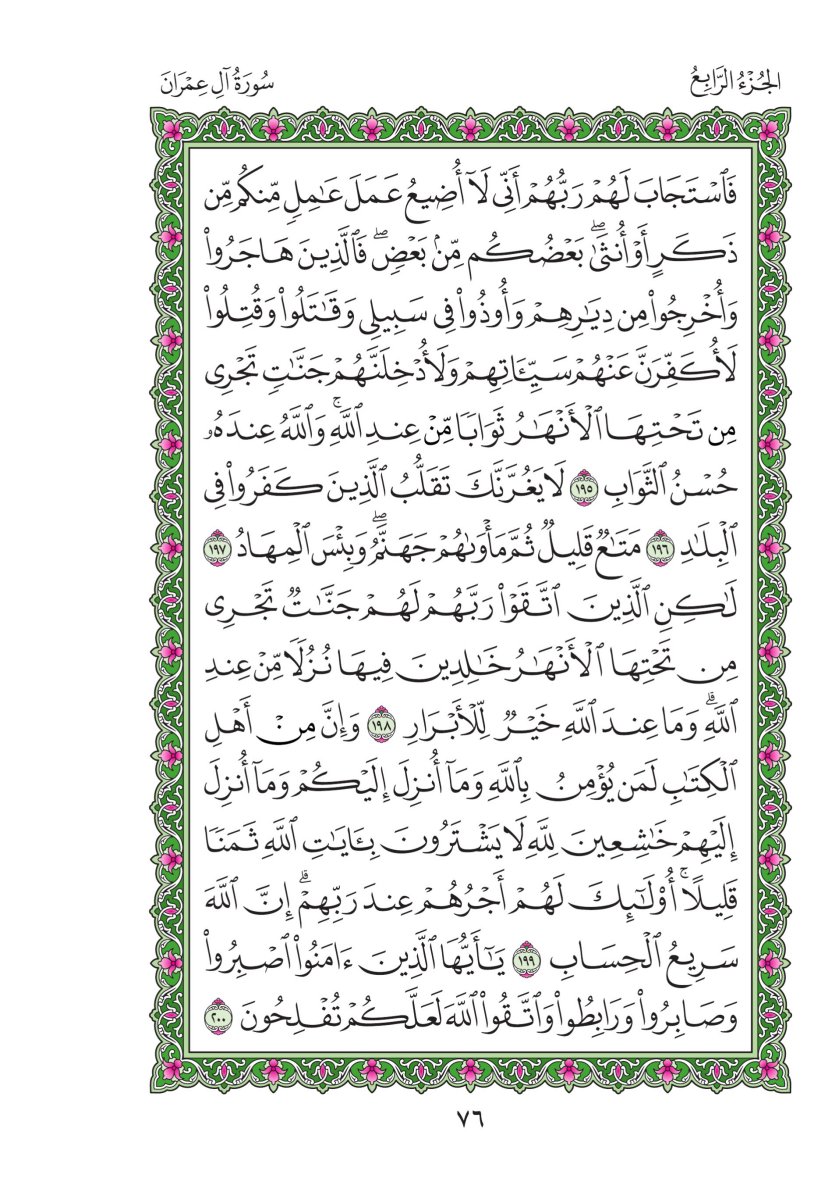 الجُزْءُ الرَّابِعُ
سُورَةُ آلِ عِمْرَانَ
فَٱسْتَجَابَ لَهُمْ رَبُّهُمْ أَنِّي لَآ أُضِيعُ عَمَلَ عَٰمِلٍ مِّنكُم مِّن
ذَكَرٍ أَوْ أُنثَىٰۖ بَعْضُكُم مِّنۢ بَعْضٍۖ فَٱلَّذِينَ هَاجَرُوا۟
وَأُخْرِجُوا۟ مِن دِيَٰرِهِمْ وَأُوذُوا۟ فِي سَبِيلِي وَقَٰتَلُوا۟ وَقُتِلُوا۟
لَأُكَفِّرَنَّ عَنْهُمْ سَيِّـَٔاتِهِمْ وَلَأُدْخِلَنَّهُمْ جَنَّٰتٍ تَجْرِي
مِن تَحْتِهَا ٱلْأَنْهَٰرُ ثَوَابًا مِّنْ عِندِ ٱللَّهِۚ وَٱللَّهُ عِندَهُۥ
حُسْنُ ٱلثَّوَابِ ١٩٥ لَا يَغُرَّنَّكَ تَقَلُّبُ ٱلَّذِينَ كَفَرُوا۟ فِي
ٱلْبِلَٰدِ ١٩٦ مَتَٰعٌ قَلِيلٌ ثُمَّ مَأْوَىٰهُمْ جَهَنَّمُۖ وَبِئْسَ ٱلْمِهَادُ ١٩٧
لَٰكِنِ ٱلَّذِينَ ٱتَّقَوْا۟ رَبَّهُمْ لَهُمْ جَنَّٰتٌ تَجْرِي
مِن تَحْتِهَا ٱلْأَنْهَٰرُ خَٰلِدِينَ فِيهَا نُزُلًا مِّنْ عِندِ
ٱللَّهِۗ وَمَا عِندَ ٱللَّهِ خَيْرٌ لِّلْأَبْرَارِ ١٩٨ وَإِنَّ مِنْ أَهْلِ
ٱلْكِتَٰبِ لَمَن يُؤْمِنُ بِٱللَّهِ وَمَآ أُنزِلَ إِلَيْكُمْ وَمَآ أُنزِلَ
إِلَيْهِمْ خَٰشِعِينَ لِلَّهِ لَا يَشْتَرُونَ بِـَٔايَٰتِ ٱللَّهِ ثَمَنًا
قَلِيلًاۚ أُو۟لَٰٓئِكَ لَهُمْ أَجْرُهُمْ عِندَ رَبِّهِمْۗ إِنَّ ٱللَّهَ
سَرِيعُ ٱلْحِسَابِ ١٩٩ يَٰٓأَيُّهَا ٱلَّذِينَ ءَامَنُوا۟ ٱصْبِرُوا۟
وَصَابِرُوا۟ وَرَابِطُوا۟ وَٱتَّقُوا۟ ٱللَّهَ لَعَلَّكُمْ تُفْلِحُونَ ٢٠٠
٧٦